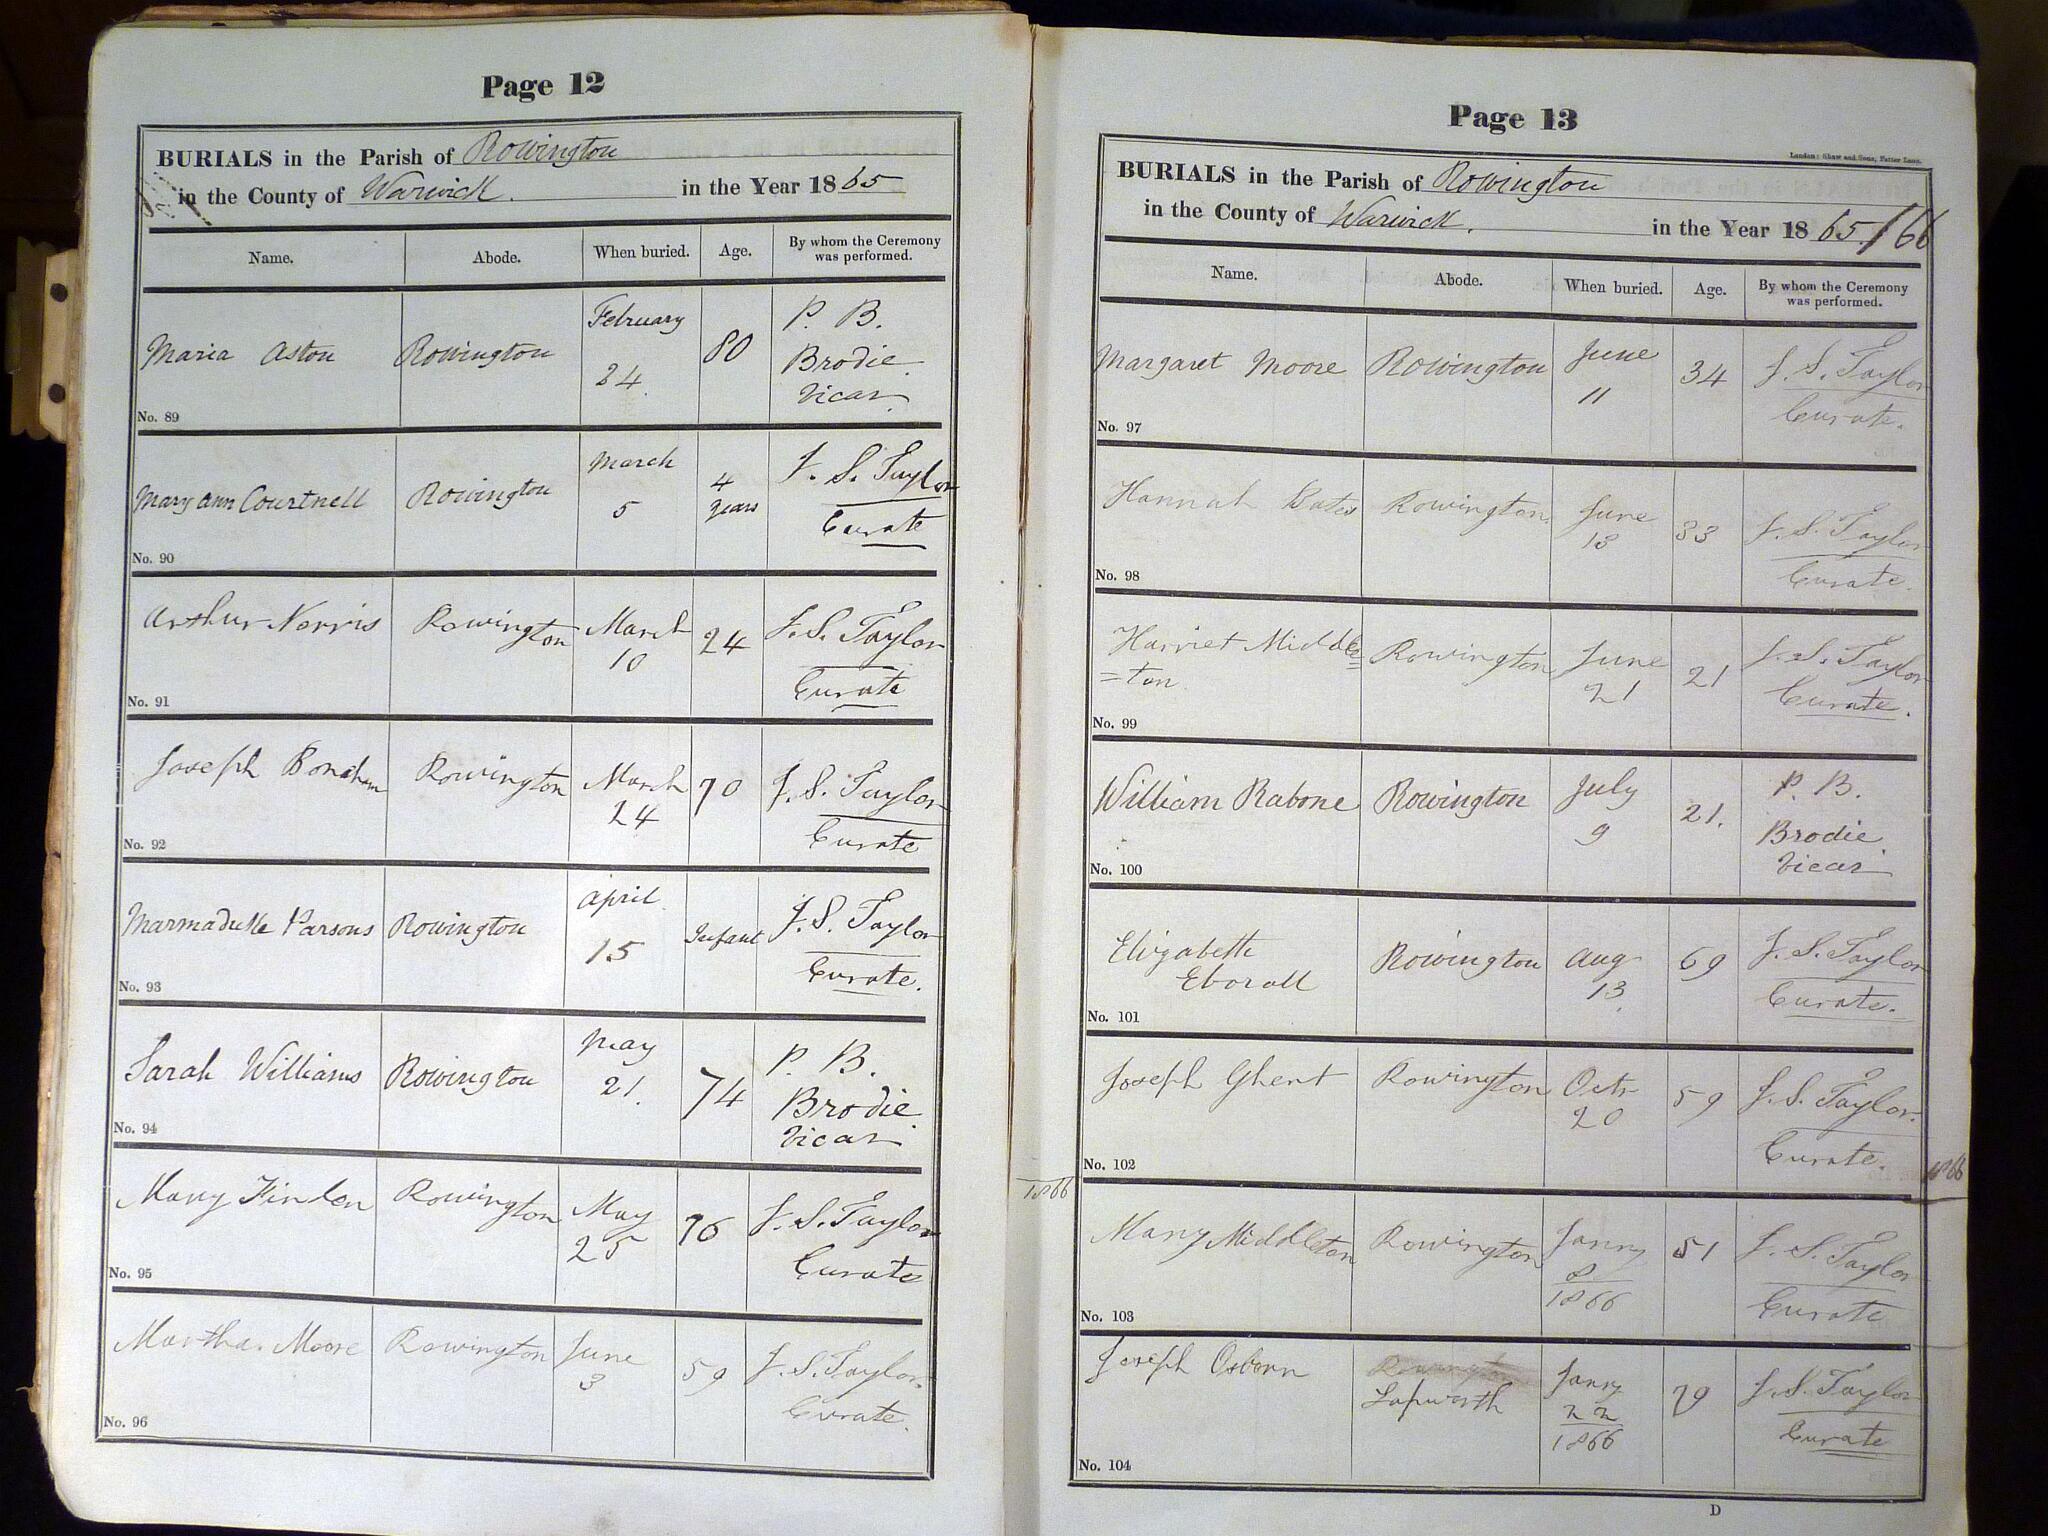 Page 12
BURIALS in the Parish of Rowington
in the County of Warwick. in the Year 1865
Name. Abode. When buried. Age. By whom the Ceremony
was performed.
Maria Aston Rowington February 24. 80 P. B. Brodie. Vicar.
No. 89
Mary Ann Courtnell Rowington March 5 4 years J. S. Taylor Curate
No. 90
Arthur Norris Rowington March 10 24 J. S. Taylor Curate
No. 91
Joseph Bonham Rowington March 24 70 J. S. Taylor Curate
No. 92
Marmaduke Parsons Rowington April 15 Infant J. S. Taylor Curate.
No. 93
Sarah Williams Rowington May 21. 74 P. B. Brodie. Vicar
No. 94
Mary Findon Rowington May 25 76 J. S. Taylor Curate
No. 95
Martha Moore Rowington June 3 59 J. S. Taylor. Curate.
No. 96
Page 13
London: Shaw and Sons, Fetter Lane.
BURIALS in the Parish of Rowington
in the County of Warwick. in the Year 1865/66
Name. Abode. When buried. Age. By whom the Ceremony
was performed.
Margaret Moore Rowington June 11 34 J. S. Taylor Curate.
No. 97
Hannah Bates Rowington June 18 J. S. Taylor Curate.
No. 98
Harriet Middle=
=ton Rowington June 21 21 J. S. Taylor Curate.
No. 99
William Rabone Rowington July 9 21. P. B. Brodie. Vicar
No. 100
Elizabeth
Eborall Rowington Aug 13 69 J. S. Taylor Curate.
No. 101
Joseph Ghent Rowington Octr 20 59 J. S. Taylor. Curate.
No. 102
1866 1866
Mary Middleton Rowington Janry 8 1866 51 J. S. Taylor Curate
No. 103
Joseph Osborn Rowington Lapworth Janry 22 1866 79 J. S. Taylor Curate
No. 104
D